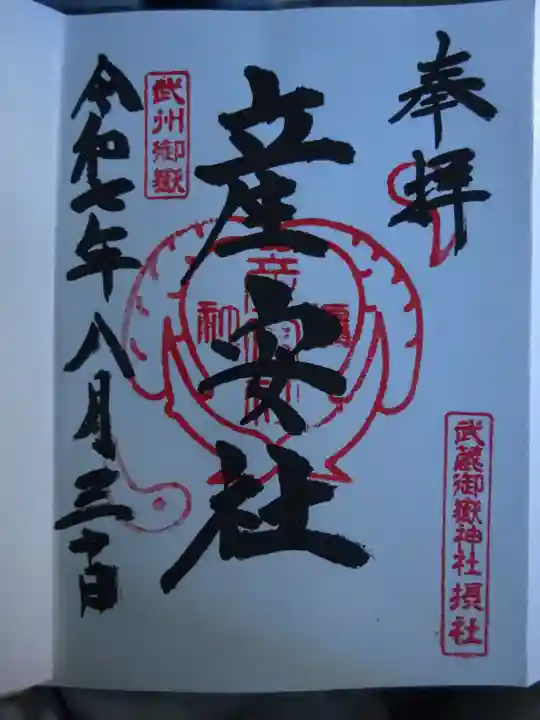 奉拝
武蔵御嶽神社摂社
産安社
武州御嶽
令和七年八月三十日